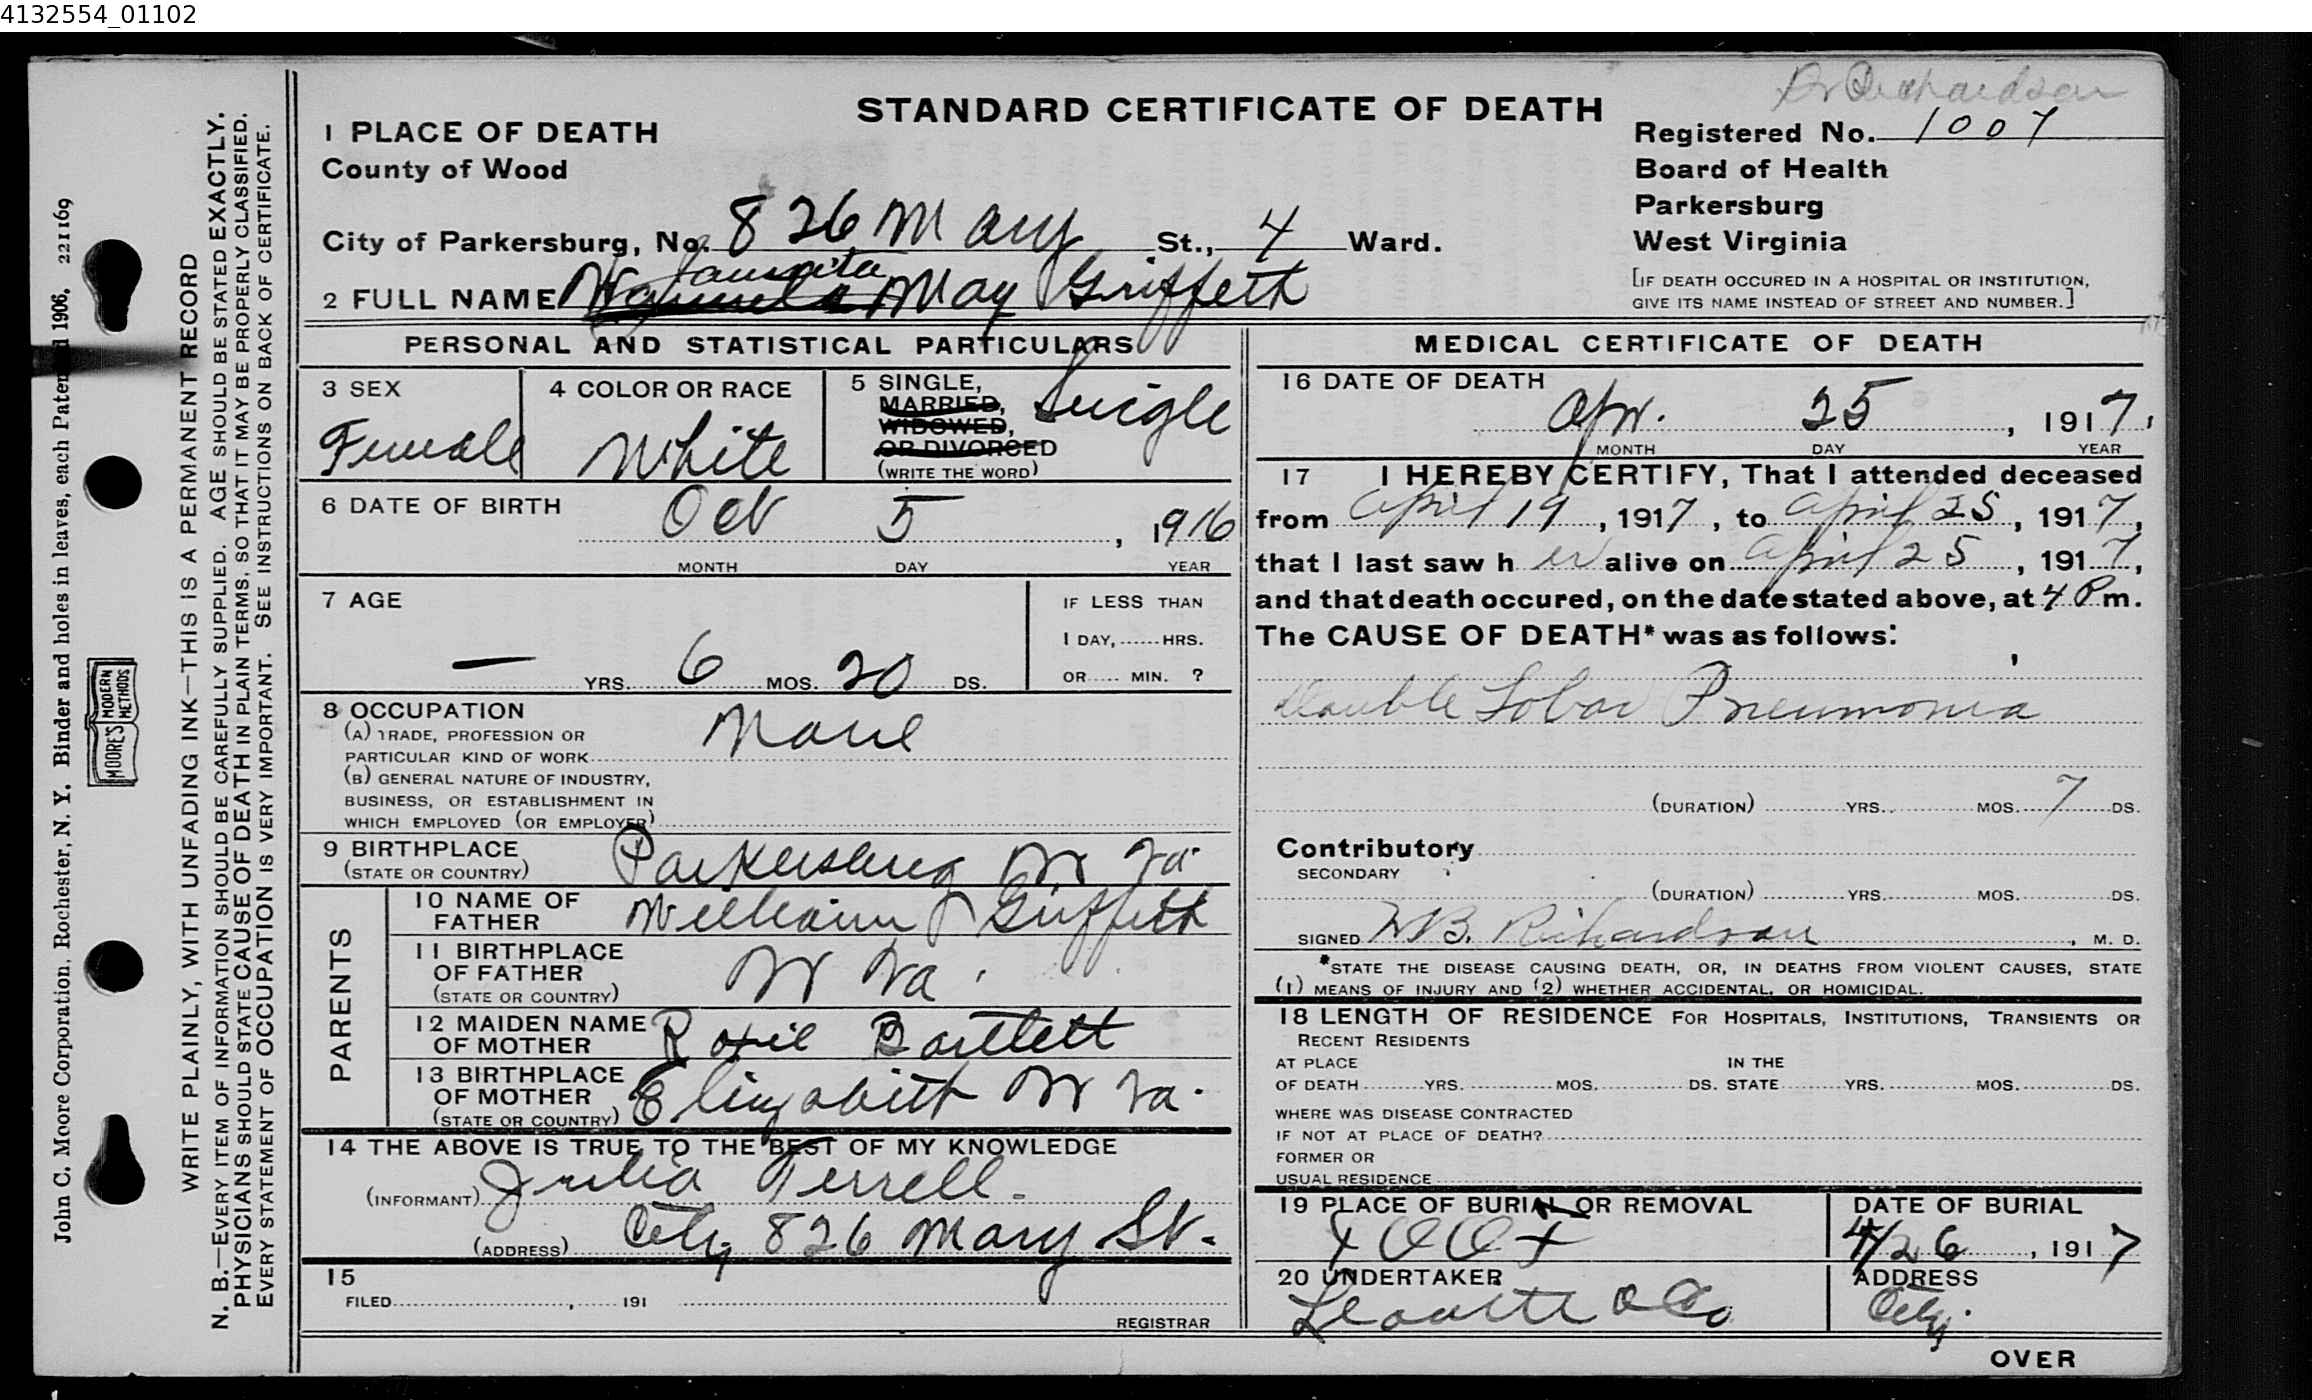 4132554_01102
Dr Richardson
STANDARD CERTIFICATE OF DEATH
1 PLACE OF DEATH
County of Wood
City of Parkersburg, No. 826 Mary St., 4 Ward.
Registered No. 1007
Board of Health
Parkersburg
West Virginia
[IF DEATH OCCURED IN A HOSPITAL OR INSTITUTION,
GIVE ITS NAME INSTEAD OF STREET AND NUMBER.]
2 FULL NAME May Griffeth
PERSONAL AND STATISTICAL PARTICULARS
3 SEX
Female
4 COLOR OR RACE
White
5 SINGLE,
MARRIED,
WIDOWED,
OR DIVORCED
(WRITE THE WORD)
Single
6 DATE OF BIRTH
Oct 5, 1916
MONTH DAY YEAR
7 AGE
— YRS. 6 MOS. 20 DS.
IF LESS THAN
1 DAY, ...... HRS.
OR ..... MIN. ?
8 OCCUPATION
(A) TRADE, PROFESSION OR
PARTICULAR KIND OF WORK None
(B) GENERAL NATURE OF INDUSTRY,
BUSINESS, OR ESTABLISHMENT IN
WHICH EMPLOYED (OR EMPLOYER)
9 BIRTHPLACE
(STATE OR COUNTRY)
Parkersburg W Va.
PARENTS
10 NAME OF
FATHER
William J Griffeth
11 BIRTHPLACE
OF FATHER
(STATE OR COUNTRY)
W Va.
12 MAIDEN NAME
OF MOTHER
Roxie Bartlett
13 BIRTHPLACE
OF MOTHER
(STATE OR COUNTRY)
Elizabeth W Va.
14 THE ABOVE IS TRUE TO THE BEST OF MY KNOWLEDGE
(INFORMANT) Julia Terrell.
(ADDRESS) City 826 Mary St.
15
FILED , 191
REGISTRAR
MEDICAL CERTIFICATE OF DEATH
16 DATE OF DEATH
Apr. 25, 1917,
MONTH DAY YEAR
17 I HEREBY CERTIFY, That I attended deceased
from April 19, 1917, to April 25, 1917,
that I last saw h er alive on April 25, 1917,
and that death occured, on the date stated above, at 4 P m.
The CAUSE OF DEATH* was as follows:
Double Lobar Pneumonia
(DURATION) YRS. MOS. 7 DS.
Contributory
SECONDARY
(DURATION) YRS. MOS. DS.
SIGNED WB. Richardson, M. D.
*STATE THE DISEASE CAUSING DEATH, OR, IN DEATHS FROM VIOLENT CAUSES, STATE
(1) MEANS OF INJURY AND (2) WHETHER ACCIDENTAL, OR HOMICIDAL.
18 LENGTH OF RESIDENCE FOR HOSPITALS, INSTITUTIONS, TRANSIENTS OR
RECENT RESIDENTS
AT PLACE IN THE
OF DEATH YRS. MOS. DS. STATE YRS. MOS. DS.
WHERE WAS DISEASE CONTRACTED
IF NOT AT PLACE OF DEATH?
FORMER OR
USUAL RESIDENCE
19 PLACE OF BURIAL OR REMOVAL
DATE OF BURIAL
4/26, 1917
20 UNDERTAKER
& Co
ADDRESS
City.
OVER
WRITE PLAINLY, WITH UNFADING INK—THIS IS A PERMANENT RECORD
N. B.—EVERY ITEM OF INFORMATION SHOULD BE CAREFULLY SUPPLIED. AGE SHOULD BE STATED EXACTLY.
PHYSICIANS SHOULD STATE CAUSE OF DEATH IN PLAIN TERMS, SO THAT IT MAY BE PROPERLY CLASSIFIED.
EVERY STATEMENT OF OCCUPATION IS VERY IMPORTANT. SEE INSTRUCTIONS ON BACK OF CERTIFICATE.
John C. Moore Corporation, Rochester, N. Y. Binder and holes in leaves, each Patented 1906, 221169
MOORE'S MODERN METHODS